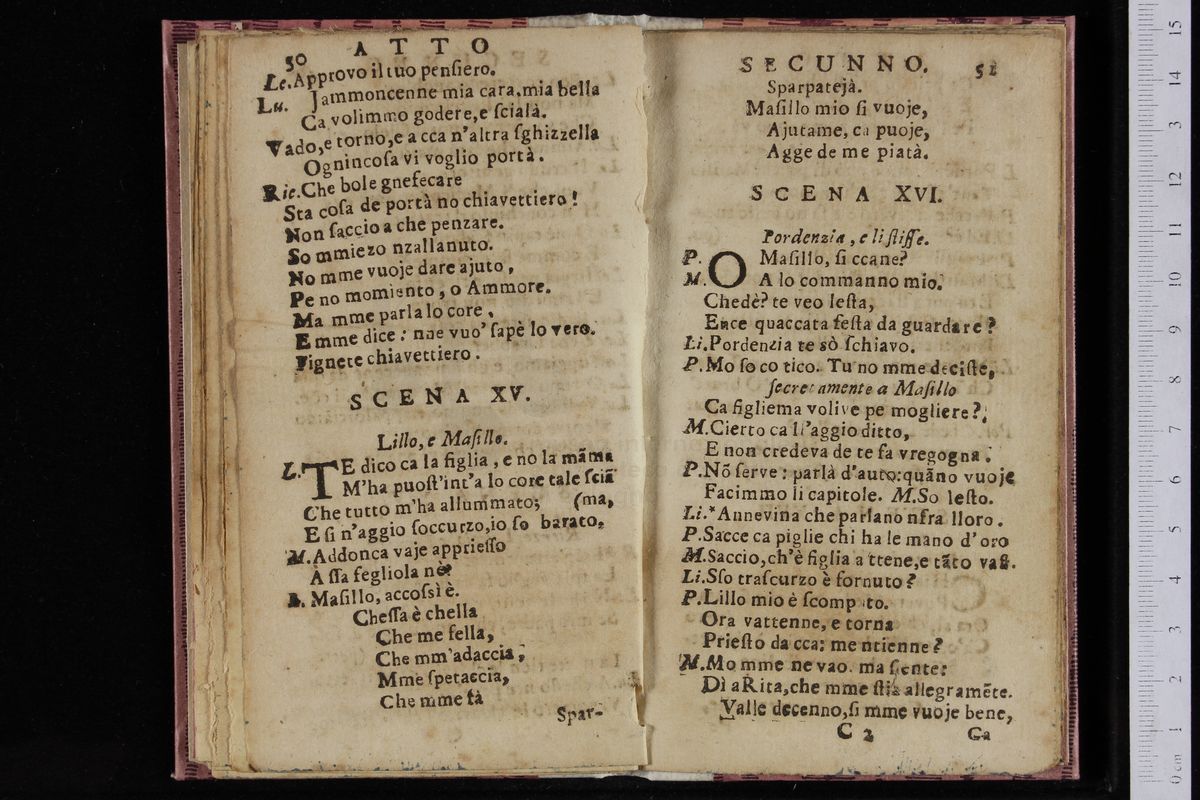 50 ATTO
Le. Approvo il tuo penſiero.
Lu. Jammoncenne mia cara, mia bella
Ca volimmo godere, e ſcialà.
Vado, e torno, e a cca n'altra ſghizzella
Ognincoſa vi voglio portà.
Ric. Che bole gnefecare
Sta coſa de portà no chiavettiero!
Non ſaccio a che penzare.
So mmiezo nzallanuto.
No mme vuoje dare ajuto,
Pe no momiento, o Ammore.
Ma mme parla lo core,
E mme dice: nne vuo' ſapè lo vero.
Fignete chiavettiero.
SCENA XV.
Lillo, e Maſillo.
L. TE dico ca la figlia, e no la mãma
M'ha puoſt'int'a lo core tale ſciã
Che tutto m'ha allummato; (ma,
E ſi n'aggio ſoccurzo, io ſo barato.
M. Addonca vaje apprieſſo
À ſſa fegliola nè?
L. Maſillo, accoſsì è.
Cheſſa è chella
Che me fella,
Che mm'adaccia,
Mme ſpetaccia,
Che mme fà
Spar-
SECUNNO. 51
Sparpatejà.
Maſillo mio ſi vuoje,
Ajutame, ca puoje,
Agge de me piatà.
SCENA XVI.
Pordenzia, e li ſtiſſe.
P. O Maſillo, ſi ccane?
M. A lo commanno mio.
Chedè? te veo leſta,
Ence quaccata feſta da guardare?
Li. Pordenzia te sò ſchiavo.
P. Mo ſo co tico. Tu no mme deciſte,
ſecretamente a Maſillo
Ca figliema volive pe mogliere?
M. Cierto ca ll'aggio ditto,
E non credeva de te fa vregogna.
P. Nõ ſerve: parlà d'auto: quãno vuoje
Facimmo li capitole. M. So leſto.
Li. *Annevina che parlano nfra lloro.
P. Sacce ca piglie chi ha le mano d'oro
M. Saccio, ch'è figlia a ttene, e tãto vaſt.
Li. Sſo traſcurzo è fornuto?
P. Lillo mio è ſcomputo.
Ora vattenne, e torna
Prieſto da cca: me ntienne?
M. Mo mme ne vao. ma ſiente:
Dì a Rita, che mme ſtia allegramẽte.
Valle decenno, ſi mme vuoje bene,
C 2 Ca
15
14
3
12
11
10
9
8
7
6
5
4
3
2
1
0 cm